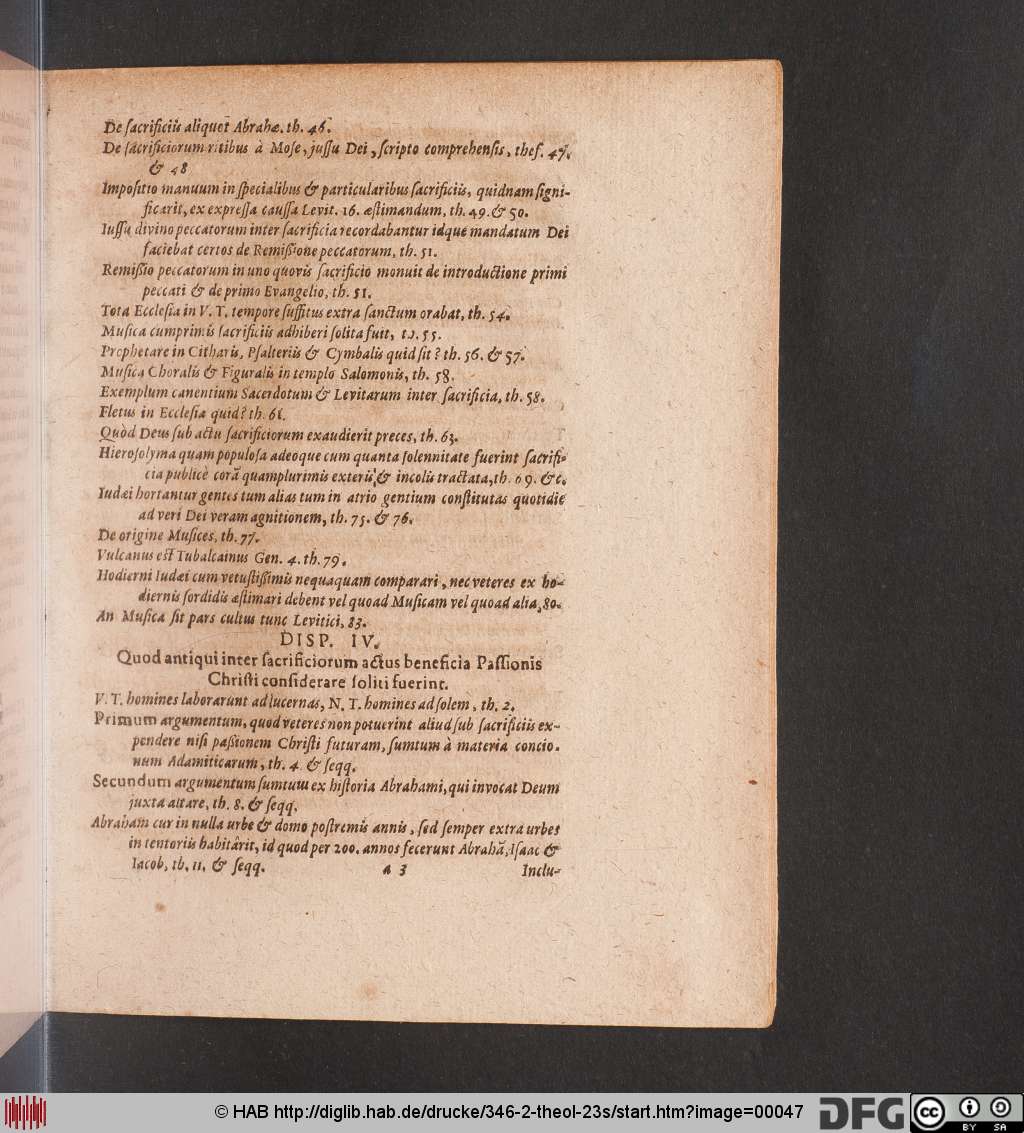 De ſacrificiis aliquet Abrahæ. th. 46.
De ſacrificiorum ritibus à Moſe, juſſu Dei, ſcripto comprehenſis, theſ. 47.
& 48
Impoſitio manuum in ſpecialibus & particularibus ſacrificiis, quidnam ſigni-
ficarit, ex expreſſa cauſſa Levit. 16. æſtimandum, th. 49. & 50.
Iuſſu divino peccatorum inter ſacrificia recordabantur idque mandatum Dei
faciebat certos de Remißione peccatorum, th. 51.
Remißio peccatorum in uno quovis ſacrificio monuit de introductione primi
peccati & de primo Evangelio, th. 51.
Tota Eccleſia in V. T. tempore ſuffitus extra ſanctum orabat, th. 54.
Muſica cumprimis ſacrificiis adhiberi ſolita fuit, th. 55.
Prophetare in Citharis, Pſalteriis & Cymbalis quid ſit? th. 56. & 57.
Muſica Choralis & Figuralis in templo Salomonis, th. 58.
Exemplum canentium Sacerdotum & Levitarum inter ſacrificia, th. 58.
Fletus in Eccleſia quid? th. 61.
Quòd Deus ſub actu ſacrificiorum exaudierit preces, th. 63.
Hieroſolyma quam populoſa adeoque cum quanta ſolennitate fuerint ſacrifi-
cia publicè corã quamplurimis exteris & incolis tractata, th. 69. &c.
Iudæi hortantur gentes tum alias tum in atrio gentium conſtitutas quotidie
ad veri Dei veram agnitionem, th. 75. & 76.
De origine Muſices, th. 77.
Vulcanus eſt Tubalcainus Gen. 4. th. 79.
Hodierni Iudæi cum vetuſtißimis nequaquam comparari, nec veteres ex ho-
diernis ſordidis æſtimari debent vel quoad Muſicam vel quoad alia, 80.
An Muſica ſit pars cultus tunc Levitici, 83.
DISP. IV.
Quod antiqui inter ſacrificiorum actus beneficia Paſſionis
Chriſti conſiderare ſoliti fuerint.
V. T. homines laborarunt ad lucernas, N. T. homines ad ſolem, th. 2.
Primum argumentum, quod veteres non potuerint aliud ſub ſacrificiis ex-
pendere niſi paßionem Chriſti futuram, ſumtum à materia concio-
num Adamiticarum, th. 4. & ſeqq.
Secundum argumentum ſumtum ex hiſtoria Abrahami, qui invocat Deum
juxta altare, th. 8. & ſeqq.
Abraham cur in nulla urbe & domo poſtremis annis, ſed ſemper extra urbes
in tentoriis habitârit, id quod per 200. annos fecerunt Abrahã, Iſaac &
Iacob, th. 11. & ſeqq.
a 3
Inclu-
© HAB http://diglib.hab.de/drucke/346-2-theol-23s/start.htm?image=00047
DFG
cc
BY SA